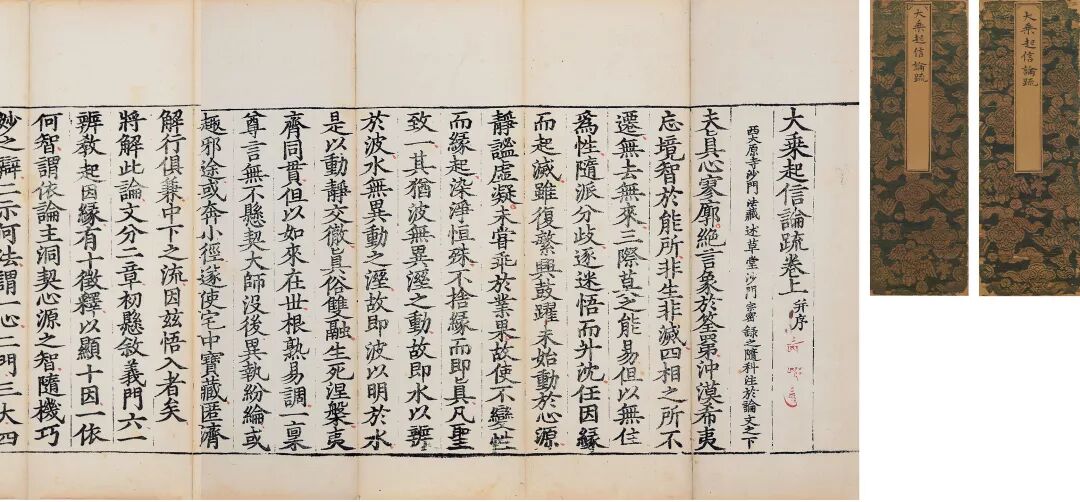 大乗起信論疏卷上 并序
西大原寺沙門 法藏 述草堂沙門 宗密 錄之隨科注於論文之下
夫眞心寥廓絶言象於筌罤沖漠希夷
忘境智於能所非生非滅四相之所不
遷無去無來三際莫之能易但以無住
爲性隨派分歧逐迷悟而升沈任因緣
而起滅雖復繁興鼓躍未始動於心源
靜謐虛凝未甞乖於業果故使不變性
而緣起染淨恒殊不捨緣而即眞凡聖
致一其猶波無異溼之動故即水以辨
於波水無異動之溼故即波以明於水
是以動靜交徹眞俗雙融生死涅槃夷
齊同貫但以如來在世根熟易調一稟
尊言無不懸契大師没後異執紛綸或
趣邪途或奔小徑遂使宅中寶藏匿濟
解行俱兼中下之流因兹悟入者矣
將解此論文分二章初懸敘義門六一
辨教起因緣有十徵釋以顯十因一依
何智謂依論主洞契心源之智隨機巧
妙之辯二示何法謂一心二門三大四
大乗起信論疏
大乗起信論疏